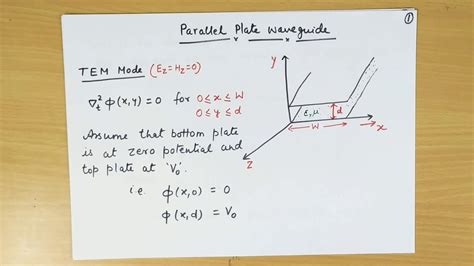 Parallel Plate Waveguide
①
TEM Mode (Ez=Hz=0)
∇t² φ(x,y) = 0 for 0≤x≤W
0≤y≤d
Assume that bottom plate
is at zero potential and
top plate at 'V₀'.
i.e. φ(x,0) = 0
φ(x,d) = V₀
y
ε,μ
d
W
x
z